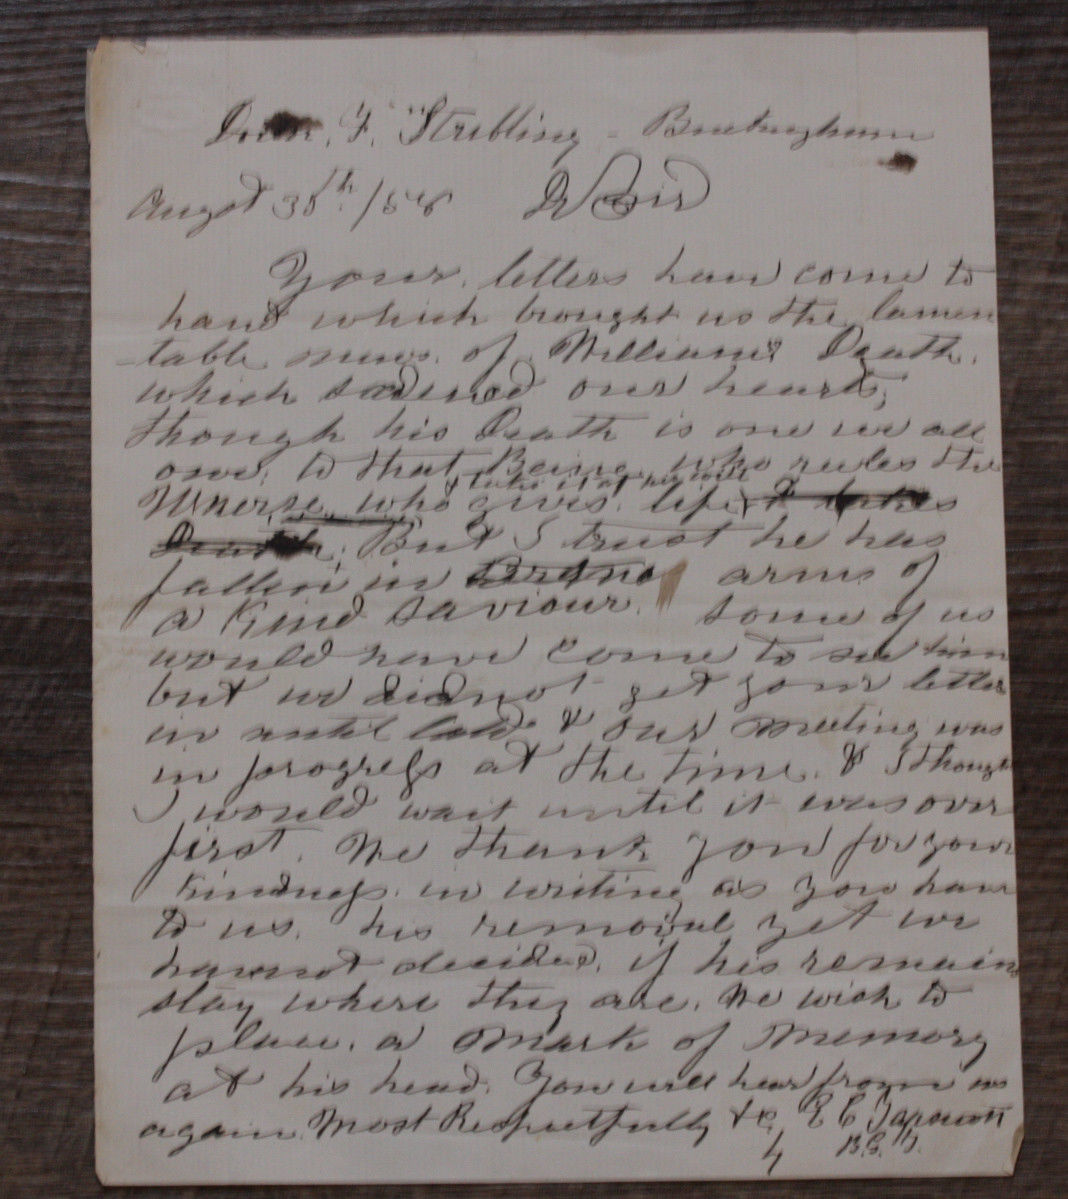 F. Stribling - Buckingham
August 30th /58 Dr Sir
Your letters have come to
hand which brought us the lamen
-table news of Williams Death,
which sadened our hearts,
though his Death is one we all
owe, to that Being who rules the
& take it at his will
Universe, who gives life & takes
Death; But I trust he has
fallen in arms of
a Kind Saviour. Some of us
would have come to see him
but we did not get your letter
in until late & our meeting was
in progress at the time. & I thought
I would wait until it was over
first. We thank you for your
Kindness in writing as you have
to us. his removal yet we
have not decided, if his remains
stay where they are. We wish to
place a mark of memory
at his head. You will hear from us
again. Most Respectfully &c E C